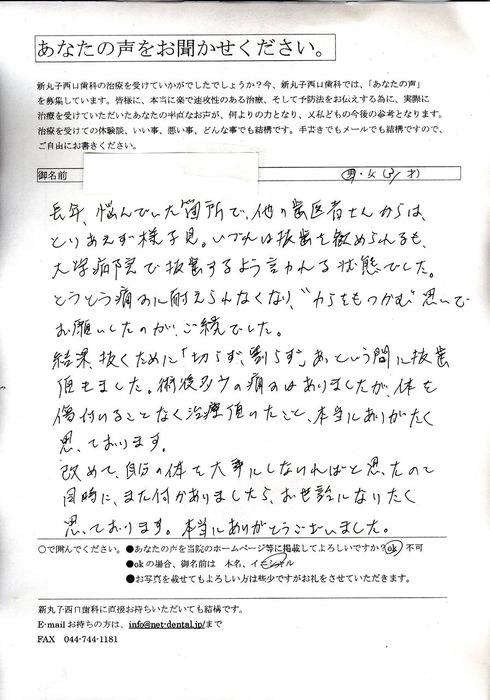 あなたの声をお聞かせください。
新丸子西口歯科の治療を受けていかがでしたでしょうか？今、新丸子西口歯科では、「あなたの声」
を募集しています。皆様に、本当に楽で速攻性のある治療、そして予防法をお伝えする為に、実際に
治療を受けていただいたあなたの率直なお声が、何よりの力となり、又私どもの今後の参考となります。
治療を受けての体験談、いい事、悪い事、どんな事でも結構です。手書きでもメールでも結構ですので、
ご自由にお書きください。
御名前 男・女(31才)
長年、悩んでいた箇所で、他の歯医者さんからは、
とりあえず様子見。いずれは抜歯を勧められるも、
大学病院で抜歯するよう言われる状態でした。
とうとう痛みに耐えられなくなり、"わらをもつかむ"思いで
お願いしたのが、ご縁でした。
結果、抜くために「切らず、割らず」、あっという間に抜歯
頂きました。術後多少の痛みはありましたが、体を
傷付けることなく治療頂いたこと、本当にありがたく
思っております。
改めて、自分の体を大事にしなければと思ったのと
同時に、また何かありましたら、お世話になりたく
思っております。本当にありがとうございました。
○で囲んでください。●あなたの声を当院のホームページ等に掲載してよろしいですか？ok 不可
●okの場合、御名前は 本名、イニシャル
●お写真を載せてもよろしい方は些少ですがお礼をさせていただきます。
新丸子西口歯科に直接お持ちいただいても結構です。
E-mailお持ちの方は、info@net-dental.jp/まで
FAX 044-744-1181